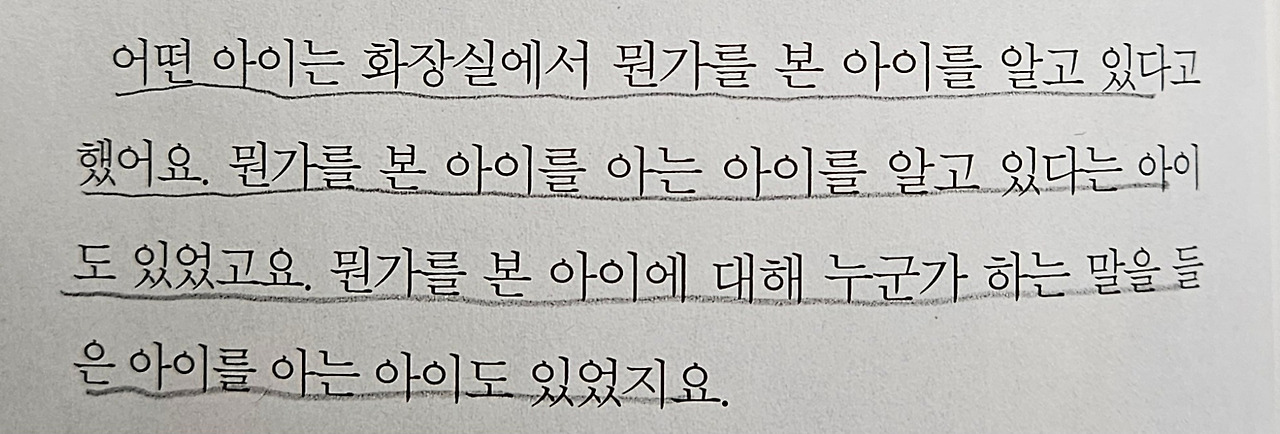 어떤 아이는 화장실에서 뭔가를 본 아이를 알고 있다고
했어요. 뭔가를 본 아이를 아는 아이를 알고 있다는 아이
도 있었고요. 뭔가를 본 아이에 대해 누군가 하는 말을 들
은 아이를 아는 아이도 있었지요.